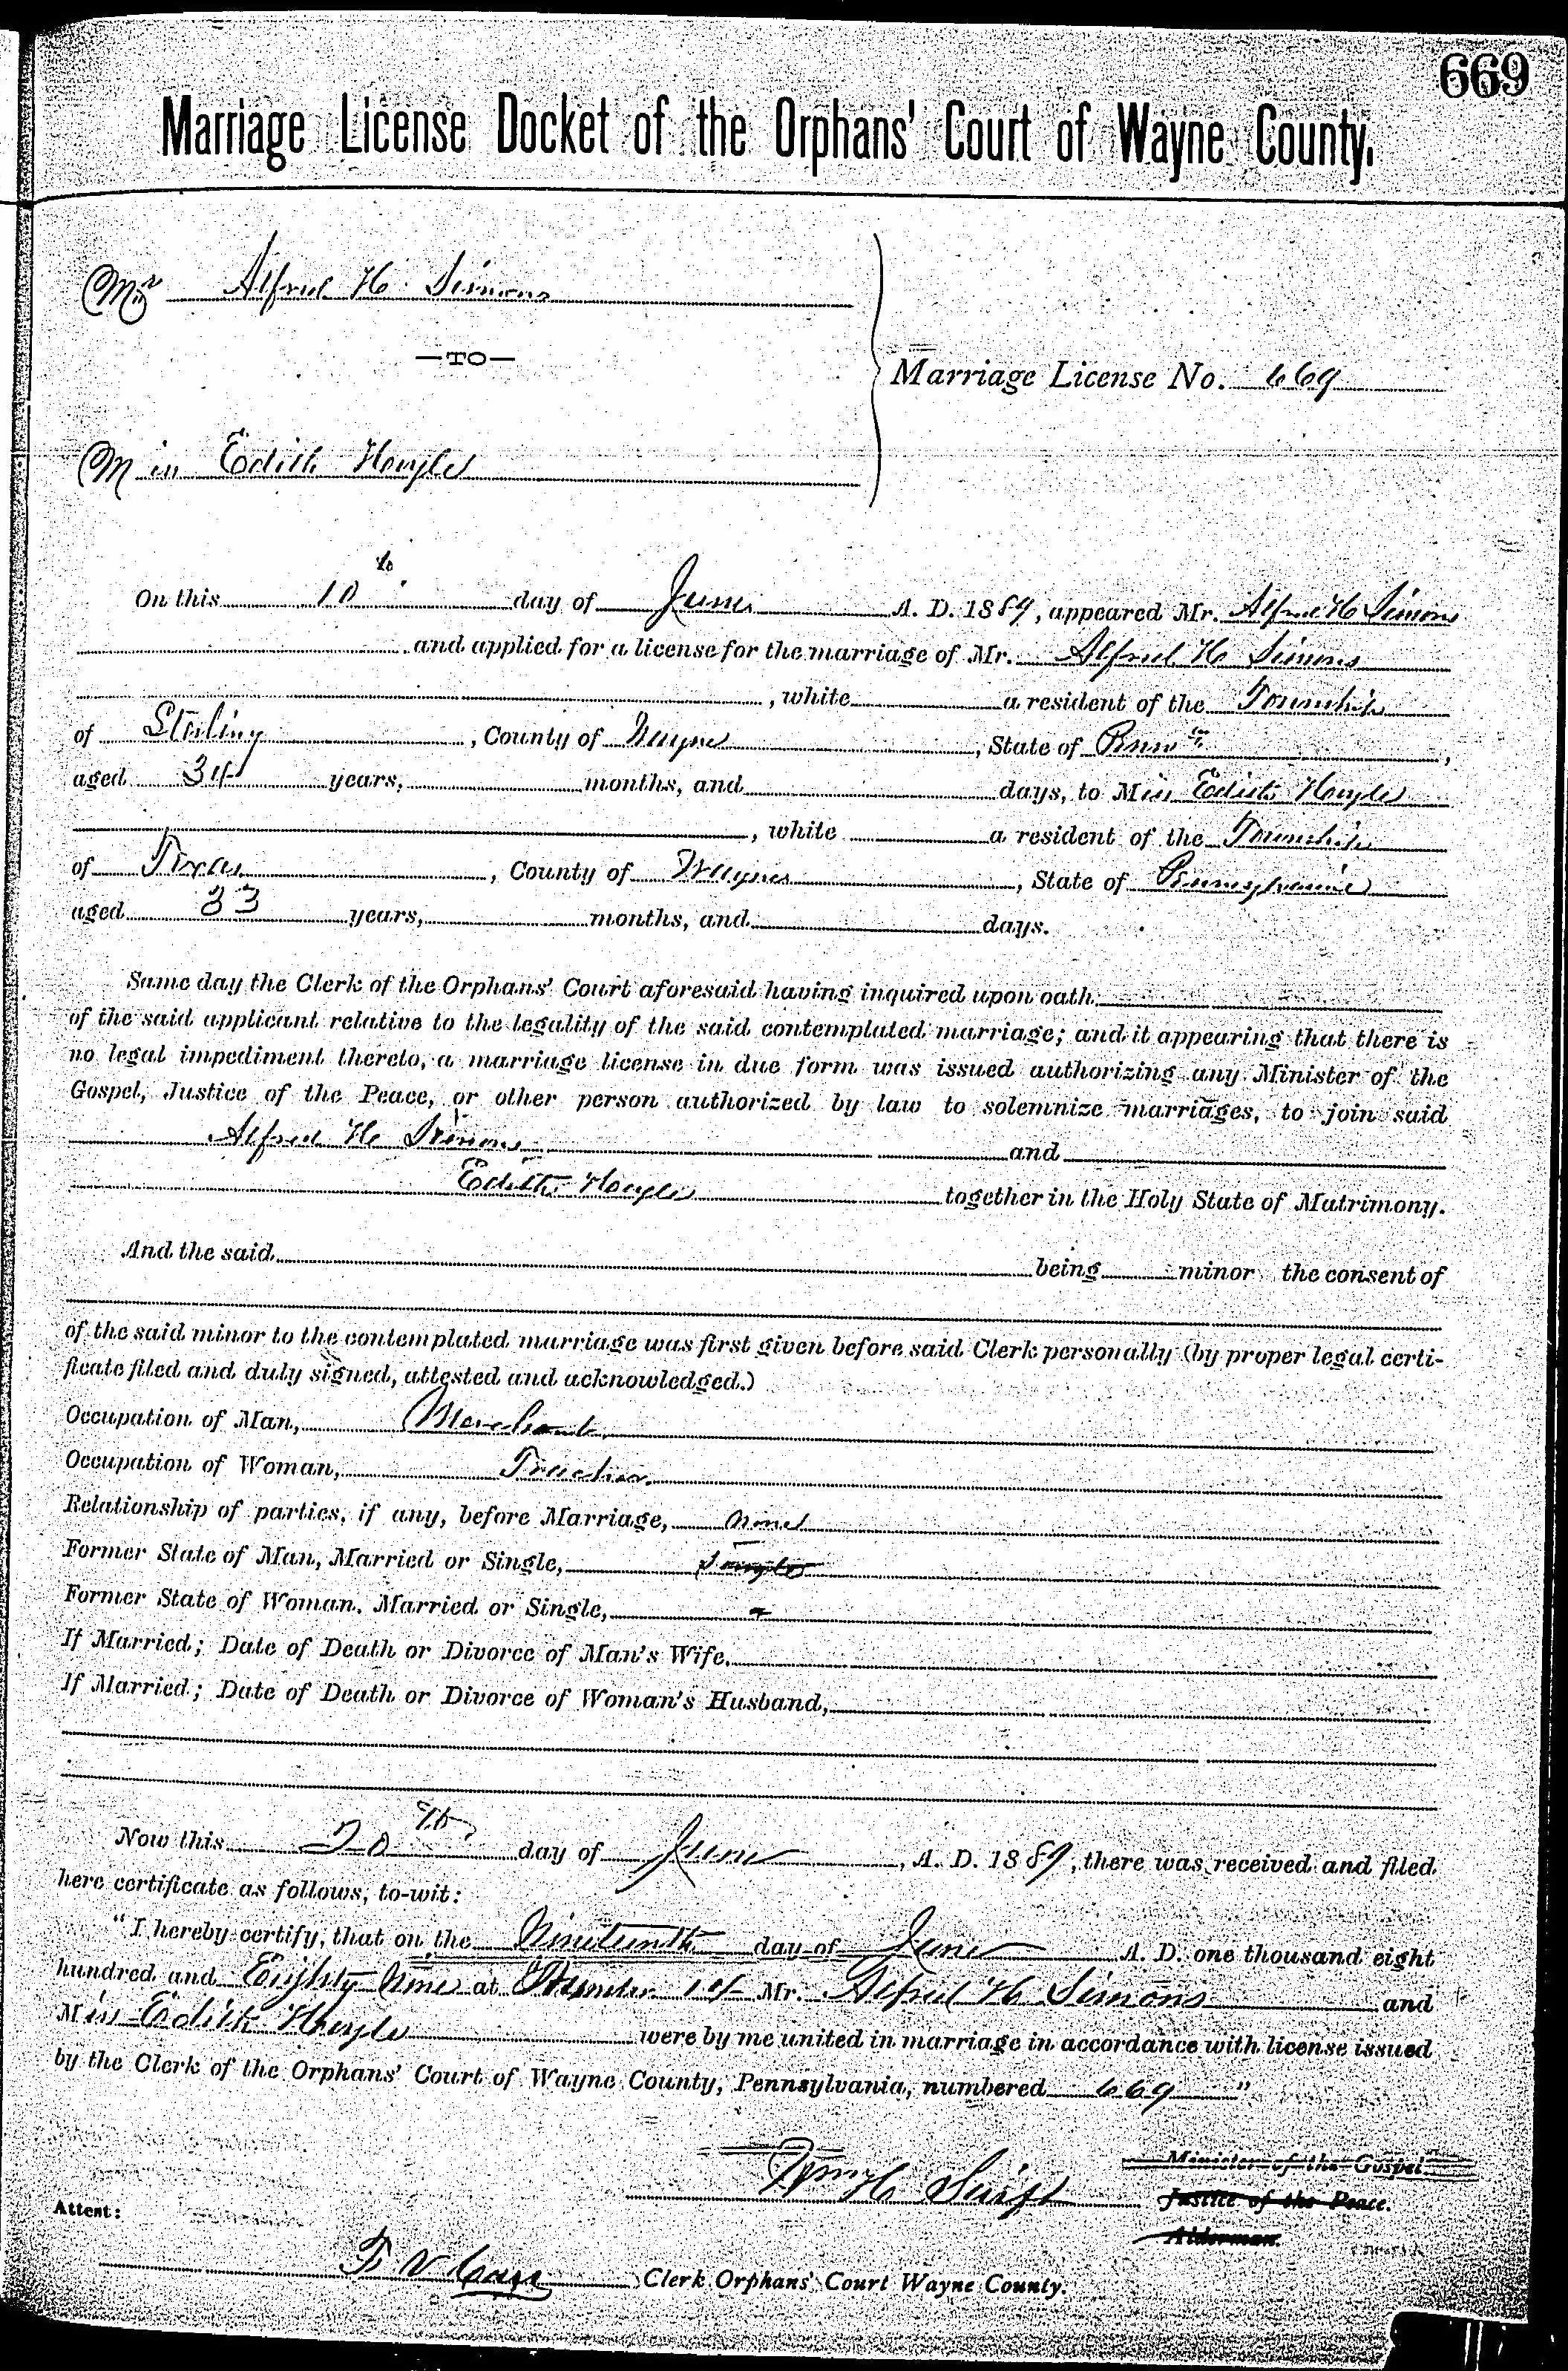 669
Marriage License Docket of the Orphans' Court of Wayne County.
Mr Alfred H Simons
—TO—
Marriage License No. 669
Miss Edith Hoyle
On this 10th day of June A. D. 1889, appeared Mr. Alfred H Simons
and applied for a license for the marriage of Mr. Alfred H Simons
, white a resident of the Township
of Sterling, County of Wayne, State of Penna,
aged 34 years, months, and days, to Miss Edith Hoyle
, white a resident of the Township
of Texas, County of Wayne, State of Pennsylvania
aged 33 years, months, and days.
Same day the Clerk of the Orphans' Court aforesaid having inquired upon oath
of the said applicant relative to the legality of the said contemplated marriage; and it appearing that there is
no legal impediment thereto, a marriage license in due form was issued authorizing any Minister of the
Gospel, Justice of the Peace, or other person authorized by law to solemnize marriages, to join said
Alfred H Simons and
Edith Hoyle together in the Holy State of Matrimony.
And the said being minor the consent of
of the said minor to the contemplated marriage was first given before said Clerk personally (by proper legal certi-
ficate filed and duly signed, attested and acknowledged.)
Occupation of Man, Merchant
Occupation of Woman, Teacher.
Relationship of parties, if any, before Marriage, None
Former State of Man, Married or Single, Single
Former State of Woman, Married or Single, "
If Married; Date of Death or Divorce of Man's Wife,
If Married; Date of Death or Divorce of Woman's Husband,
Now this 20th day of June, A. D. 1889, there was received and filed
here certificate as follows, to-wit:
"I hereby certify, that on the Nineteenth day of June A. D. one thousand eight
hundred and Eighty Nine at Mr. Alfred H Simons and
Miss Edith Hoyle were by me united in marriage in accordance with license issued
by the Clerk of the Orphans' Court of Wayne County, Pennsylvania, numbered 669"
Wm H Swift
Minister of the Gospel.
Justice of the Peace.
Alderman.
Attest:
Clerk Orphans' Court Wayne County.